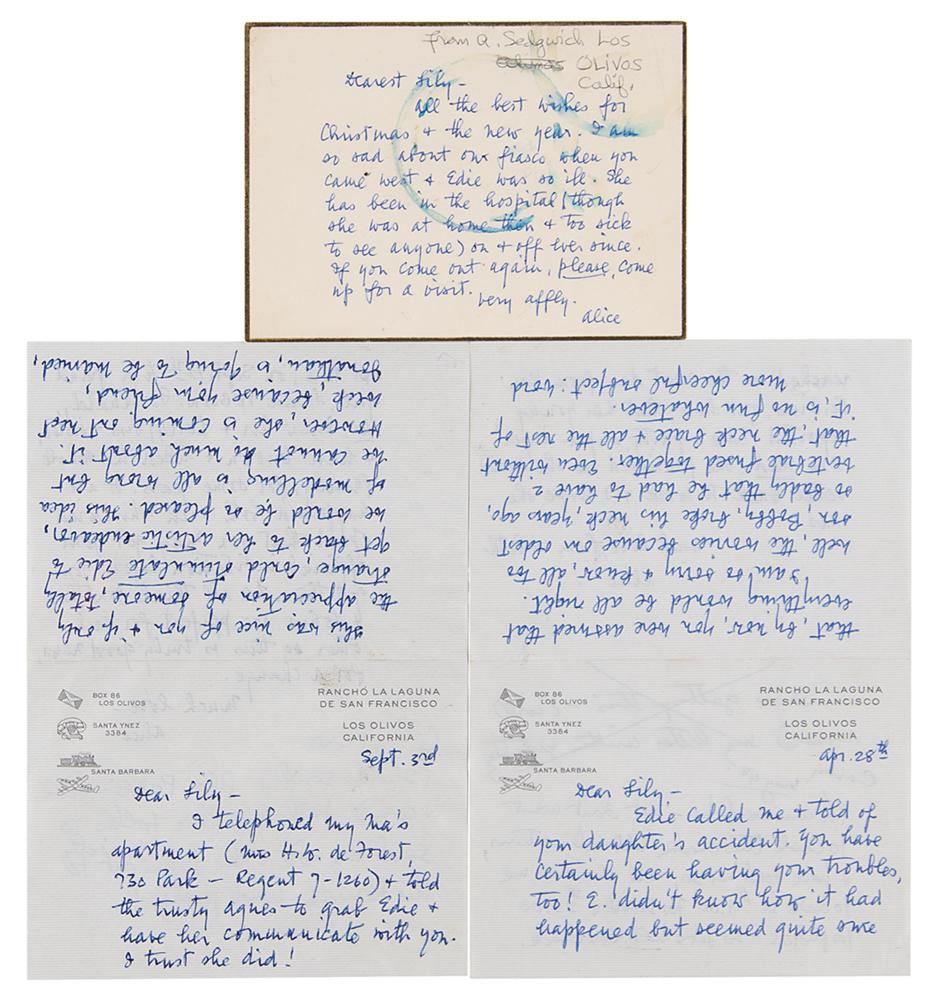 From A. Sedgwick Los
OLIVOS
Calif.
Dearest Lily -
All the best wishes for
Christmas + the new year. I am
so sad about our fiasco when you
came west + Edie was so ill. She
has been in the hospital (though
she was at home then + too sick
to see anyone) on + off ever since.
If you come out again, please, come
up for a visit.
Very affly.
Alice
BOX 86
LOS OLIVOS
SANTA YNEZ
3384
SANTA BARBARA
RANCHO LA LAGUNA
DE SAN FRANCISCO
LOS OLIVOS
CALIFORNIA
Sept. 3rd
Dear Lily -
I telephoned my Ma's
apartment (Mrs H. W. de Forest,
730 Park - Regent 7-1260) + told
the trusty Agnes to grab Edie +
have her communicate with you.
I trust she did!
This was nice of you + if only
the appreciation of someone, totally
strange, could stimulate Edie to
get back to her artistic endeavor,
we would be so pleased. This idea
of modelling is all wrong but
we cannot do much about it.
However, she is coming out next
week, because your friend,
Jonathan, is going to be married,
BOX 86
LOS OLIVOS
SANTA YNEZ
3384
SANTA BARBARA
RANCHO LA LAGUNA
DE SAN FRANCISCO
LOS OLIVOS
CALIFORNIA
Apr. 28th
Dear Lily -
Edie called me + told of
your daughter's accident. You have
certainly been having your troubles,
too! E. didn't know how it had
happened but seemed quite sure
that, by now, you were assured that
everything would be all right.
I am so sorry + know, all too
well, the worries because our oldest
son, Bobby, broke his neck, years ago,
so badly that he had to have 2
vertebrae fused together. Even without
that, the neck brace + all the rest of
it, is no fun whatever.
more cheerful subject: word